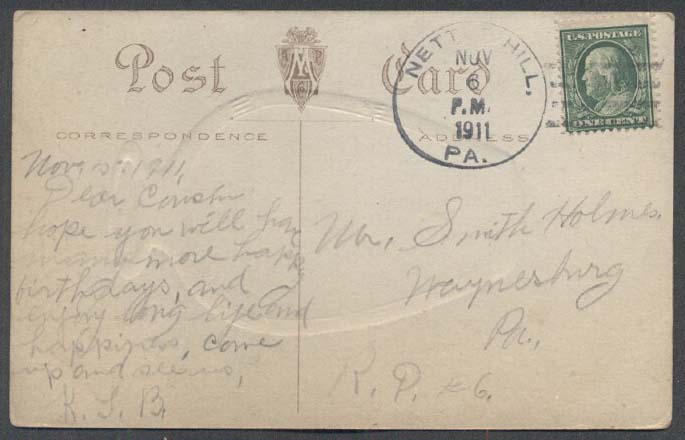 Post Card
CORRESPONDENCE
ADDRESS
NETT HILL,
NOV
6
P.M.
1911
PA.
U.S. POSTAGE
ONE CENT
Nov, 5, 1911,
Dear Cousin
hope you will
many more happy
birthdays, and
enjoy long life and
happiness, come
up and see us,
K. S. B.
Mr. Smith Holmes.
Waynesburg
Pa.,
R. D. #6.